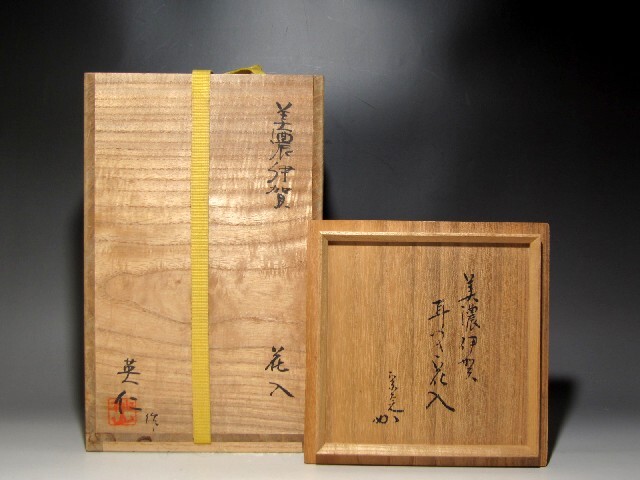 美濃伊賀
花入
英仁
作
美濃伊賀
耳つき花入